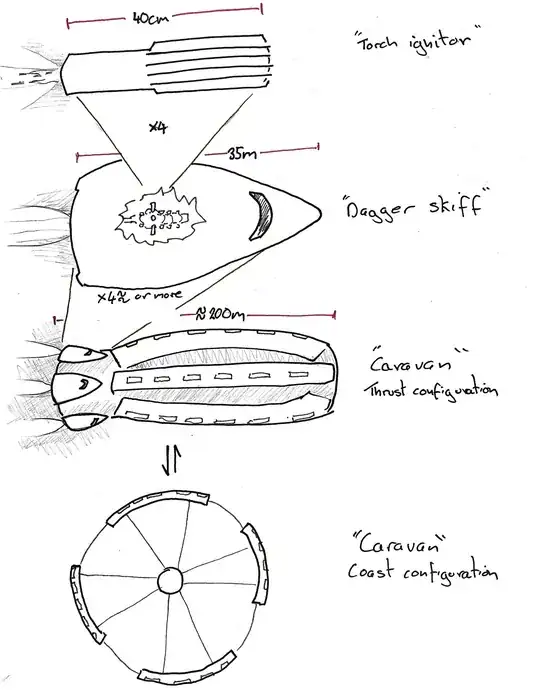 40cm
"Torch ignitor"
x4
35m
"Dagger skiff"
x4≈ or more
≈200m
"Caravan"
Thrust configuration
"Caravan"
Coast configuration